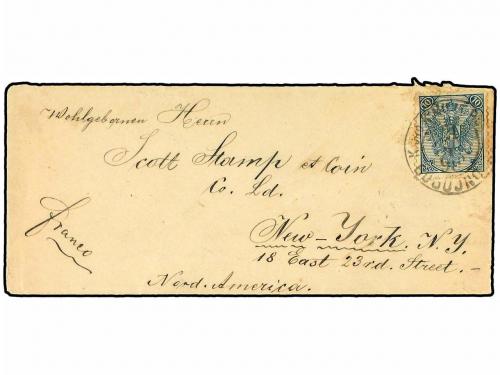 Wohlgebornen Herrn
Scott Stamp et Coin
Co. Ld.
New-York. N.Y.
18 East 23rd. Street.-
Nord. America.
franco
10 10